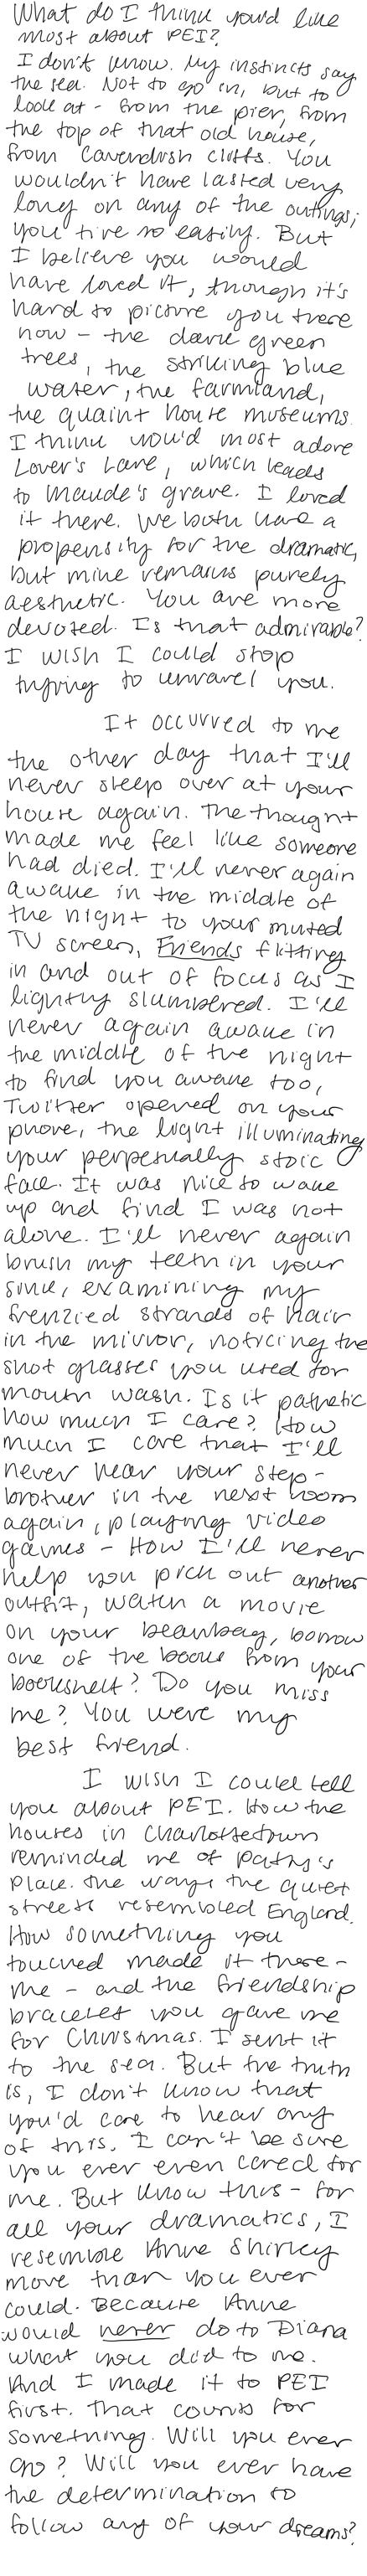 What do I think you'd like
most about PEI?
I don't know. My instincts say
the sea. Not to go in, but to
look at - from the pier, from
the top of that old house,
from Cavendish cliffs. You
wouldn't have lasted very
long on any of the outings;
you tire so easily. But
I believe you would
have loved it, though it's
hard to picture you there
now - the dark green
trees, the striking blue
water, the farmland,
the quaint house museums.
I think you'd most adore
Lover's Lane, which leads
to Maude's grave. I loved
it there. We both have a
propensity for the dramatic,
but mine remains purely
aesthetic. You are more
devoted. Is that admirable?
I wish I could stop
trying to unravel you.
It occurred to me
the other day that I'll
never sleep over at your
house again. The thought
made me feel like someone
had died. I'll never again
awake in the middle of
the night to your muted
TV screen, Friends flitting
in and out of focus as I
lightly slumbered. I'll
never again awake in
the middle of the night
to find you awake too,
Twitter opened on your
phone, the light illuminating
your perpetually stoic
face. It was nice to wake
up and find I was not
alone. I'll never again
brush my teeth in your
sink, examining my
frenzied strands of hair
in the mirror, noticing the
shot glasses you used for
mouth wash. Is it pathetic
how much I care? How
much I care that I'll
never hear your step-
brother in the next room
again, playing video
games - How I'll never
help you pick out another
outfit, watch a movie
on your beanbag, borrow
one of the books from your
bookshelf? Do you miss
me? You were my
best friend.
I wish I could tell
you about PEI. How the
houses in Charlottetown
reminded me of Patty's
Place. The ways the quiet
streets resembled England.
How something you
touched made it there -
me - and the friendship
bracelet you gave me
for Christmas. I sent it
to the sea. But the truth
is, I don't know that
you'd care to hear any
of this. I can't be sure
you ever even cared for
me. But know this - for
all your dramatics, I
resemble Anne Shirley
more than you ever
could. Because Anne
would never do to Diana
what you did to me.
And I made it to PEI
first. That counts for
something. Will you ever
go? Will you ever have
the determination to
follow any of your dreams?